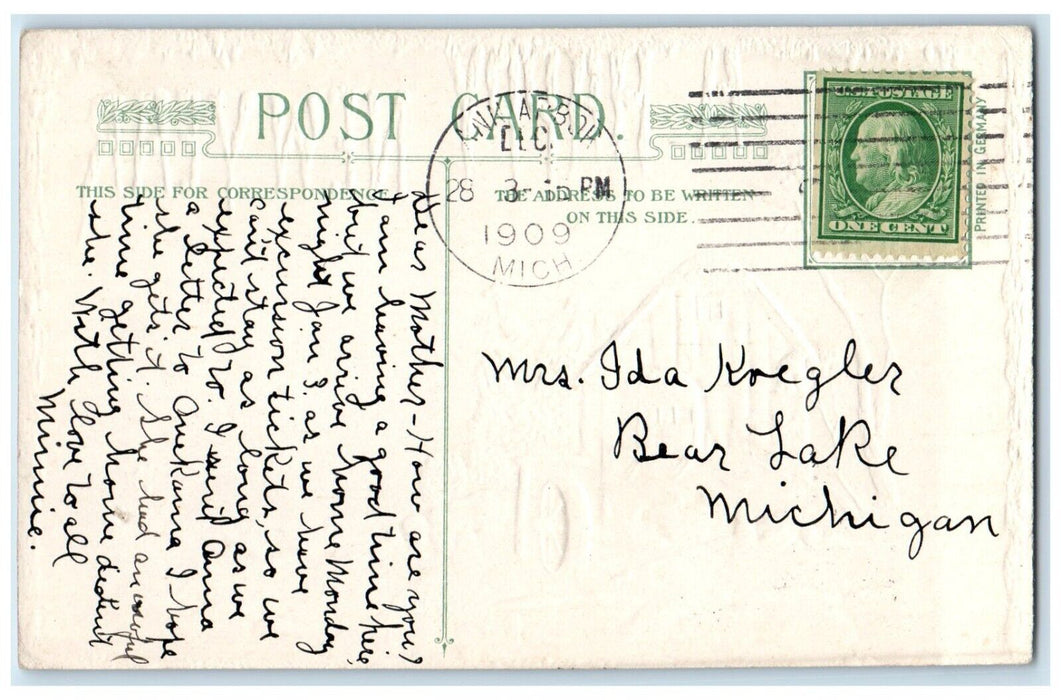 POST CARD.
THIS SIDE FOR CORRESPONDENCE
THE ADDRESS TO BE WRITTEN
ON THIS SIDE.
ANN ARBOR
DEC
28 3-15 PM
1909
MICH
U.S. POSTAGE
ONE CENT
PRINTED IN GERMANY
Dear Mother - How are you?
I am having a good time here,
but we arrive home Monday
night Jan 3. as we have
excursion tickets, so we
can't stay as long as we
expected to. I sent Anna
a letter to Onekama I hope
she gets it. She had an awful
time getting home didn't
she. With love to all
Minnie.
Mrs. Ida Koegler
Bear Lake
Michigan